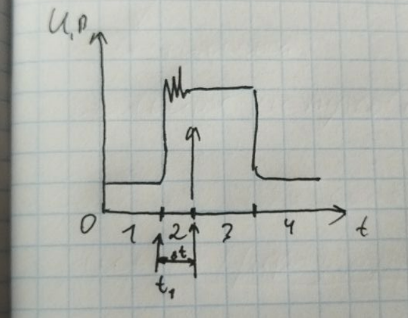 U,В
0 1 2 3 4 t
Δt
t₁